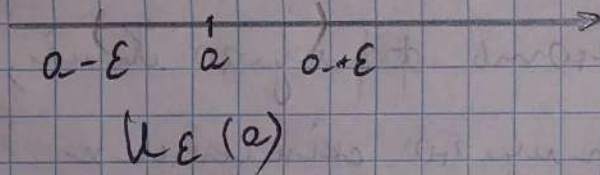 a - ε a a + ε
U ε (a)